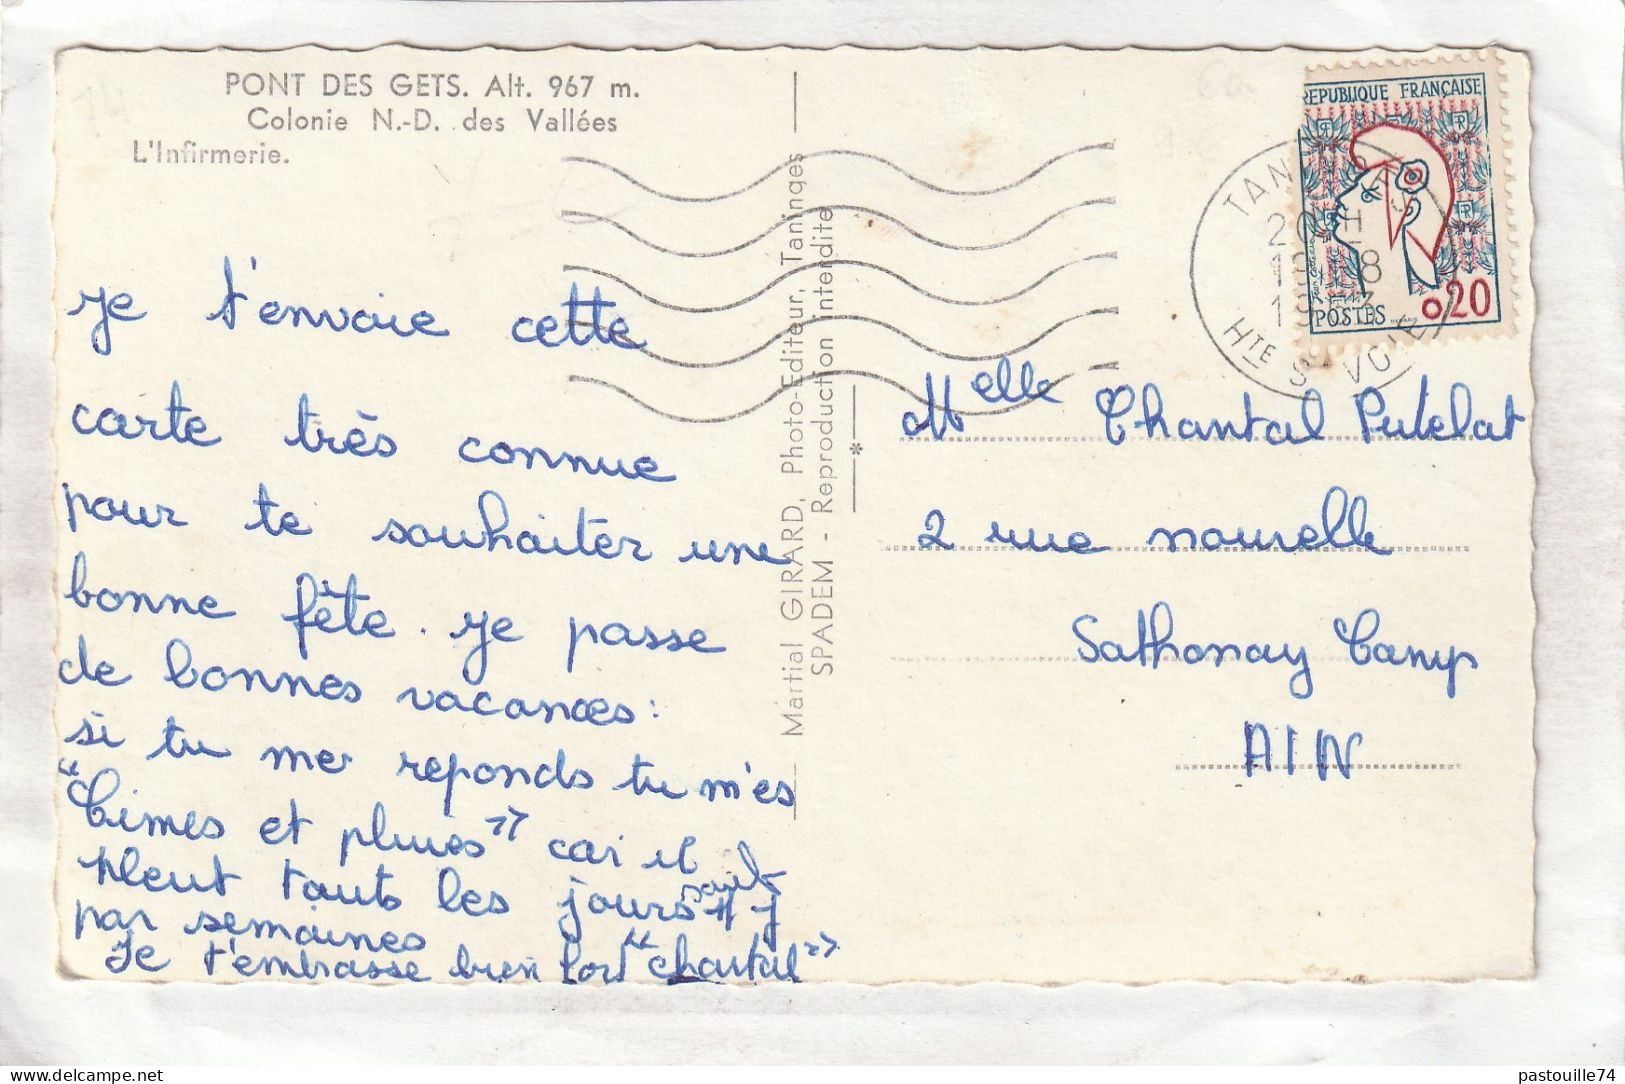 PONT DES GETS. Alt. 967 m.
Colonie N.-D. des Vallées
L'Infirmerie.
je t'envoie cette
carte très connue
pour te souhaiter une
bonne fête. je passe
de bonnes vacances:
si tu me reponds tu m'es
"Cimes et pluies" car il
pleut touts les jours sauf 1 j
par semaines
Je t'embrasse bien fort "chantal"
Martial GIRARD, Photo-Editeur, Taninges
SPADEM - Reproduction interdite
REPUBLIQUE FRANÇAISE
0,20
POSTES
20 H
HTE SAVOIE
Melle Chantal Putelat
2 rue nouvelle
Sathonay Camp
AIN
delcampe.net
pastouille74